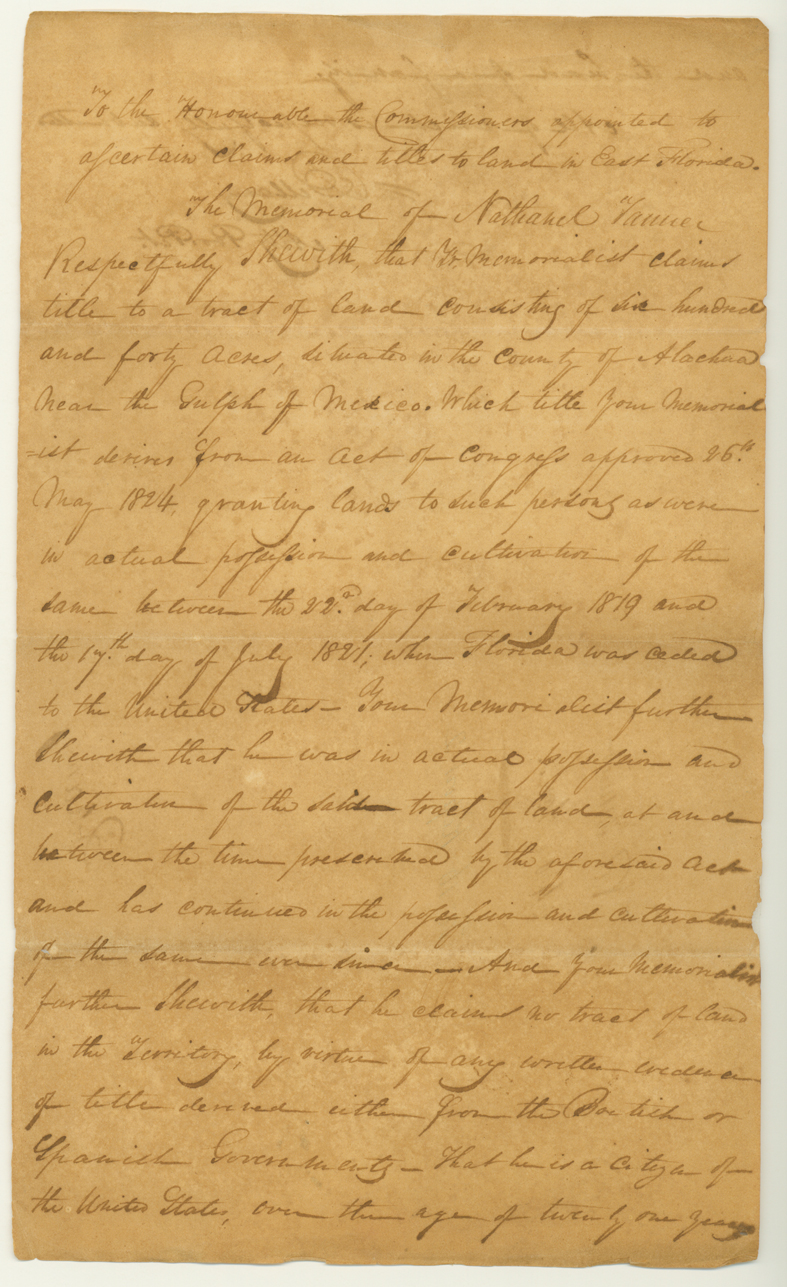 To the Honourable the Commissioners appointed to
ascertain claims and titles to land in East Florida.
The Memorial of Nathanel
Respectfully Shewith, that Yr. Memorialist claims
title to a tract of land consisting of six hundred
and forty acres, situated in the county of Alachua
near the Gulph of Mexico. Which title your Memorial
=ist derives from an act of Congress approved 26.th
May 1824, granting lands to such persons as were
in actual possession and cultivation of the
same between the 22.d day of February 1819 and
the 17.th day of July 1821, when Florida was ceded
to the United States – Your Memorialist further
Shewith that he was in actual possession and
cultivation of the said tract of land, at and
between the time prescribed by the aforesaid act
and has continued in the possession and cultivation
of the same ever since – And your Memorialist
further Shewith, that he claims no tract of land
in the Territory, by virtue of any written evidence
of title derived either from the British or
Spanish Governments – That he is a Citizen of
the United States, over the age of twenty one years